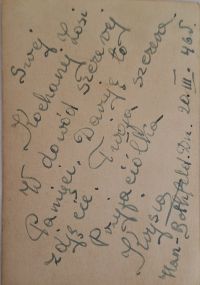 Swej
Kochanej Zosi
W dowód szczerej
Pamięci. Daruję to
zdjęcie. Twoja szczera
Przyjaciółka
Krysia
Han- dn. 20.III.46r.